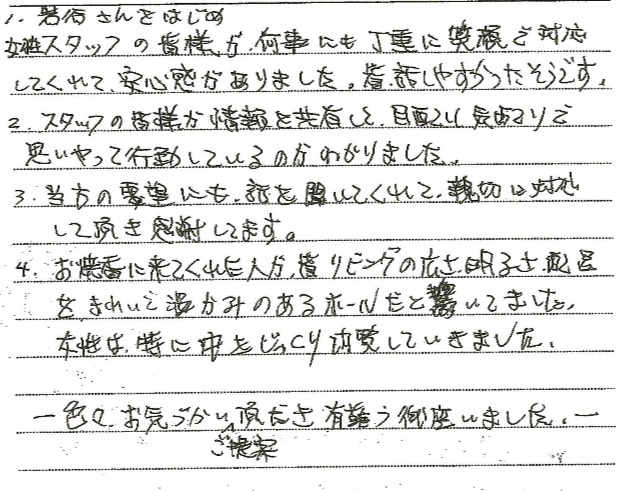 1. 岩谷さんをはじめ
女性スタッフの皆様が、何事にも丁重に笑顔で対応
してくれて、安心感がありました。皆話しやすかったそうです。
2. スタッフの皆様が情報を共有して、目配り気配りで
思いやって行動しているのがわかりました。
3. 当方の要望にも、話を聞いてくれて、親切に対応
して頂き感謝してます。
4. お焼香に来てくれた人が、皆リビングの広さ、明るさ、配置
をきれいで温かみのあるホールだと驚いてました。
女性は、特に中をじっくり内覧していきました。
一色々、お気づかい、頂だき有難う御座いました。一
ご提案